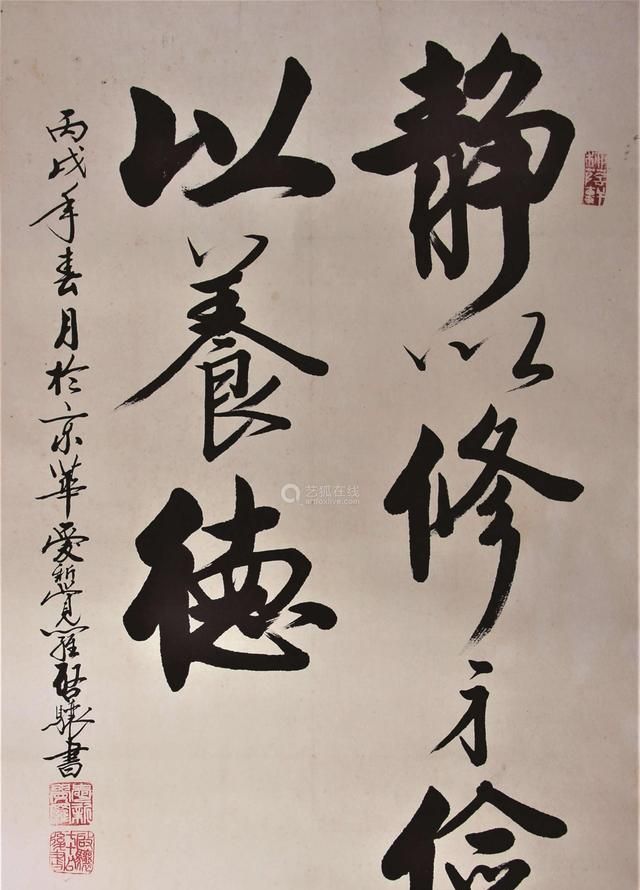 静以修身儉
以養德
丙戌年春月於京華愛新覺羅啟驤書
艺狐在线
artfoxlive.com